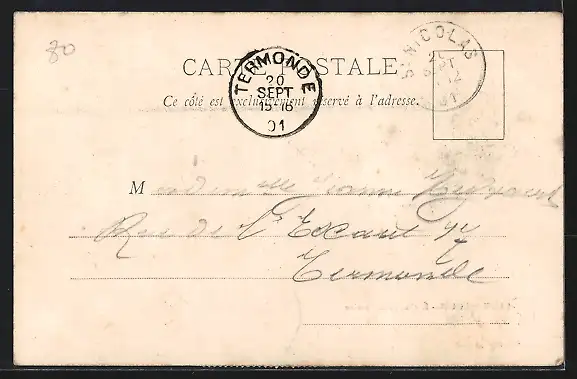 80
CARTE POSTALE
Ce côté est exclusivement réservé à l'adresse.
TERMONDE
20
SEPT
15-16
01
ST NICOLAS
SEPT
12
01
Mademoiselle Jeanne
Rue de l'Escaut 47
Termonde